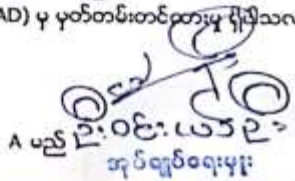 AD) မှ မှတ်တမ်းတင်ထားမှု ရှိပါသလ
A မည် ဦးဝင်း
အုပ်ချုပ်ရေးမှူး